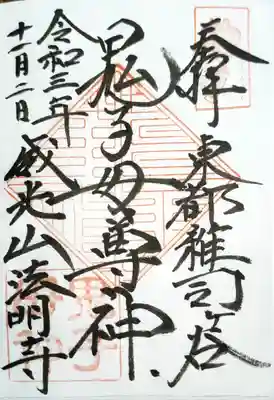 奉拝
東都雑司ヶ谷
鬼子母尊神
威光山法明寺
令和三年
十一月二日